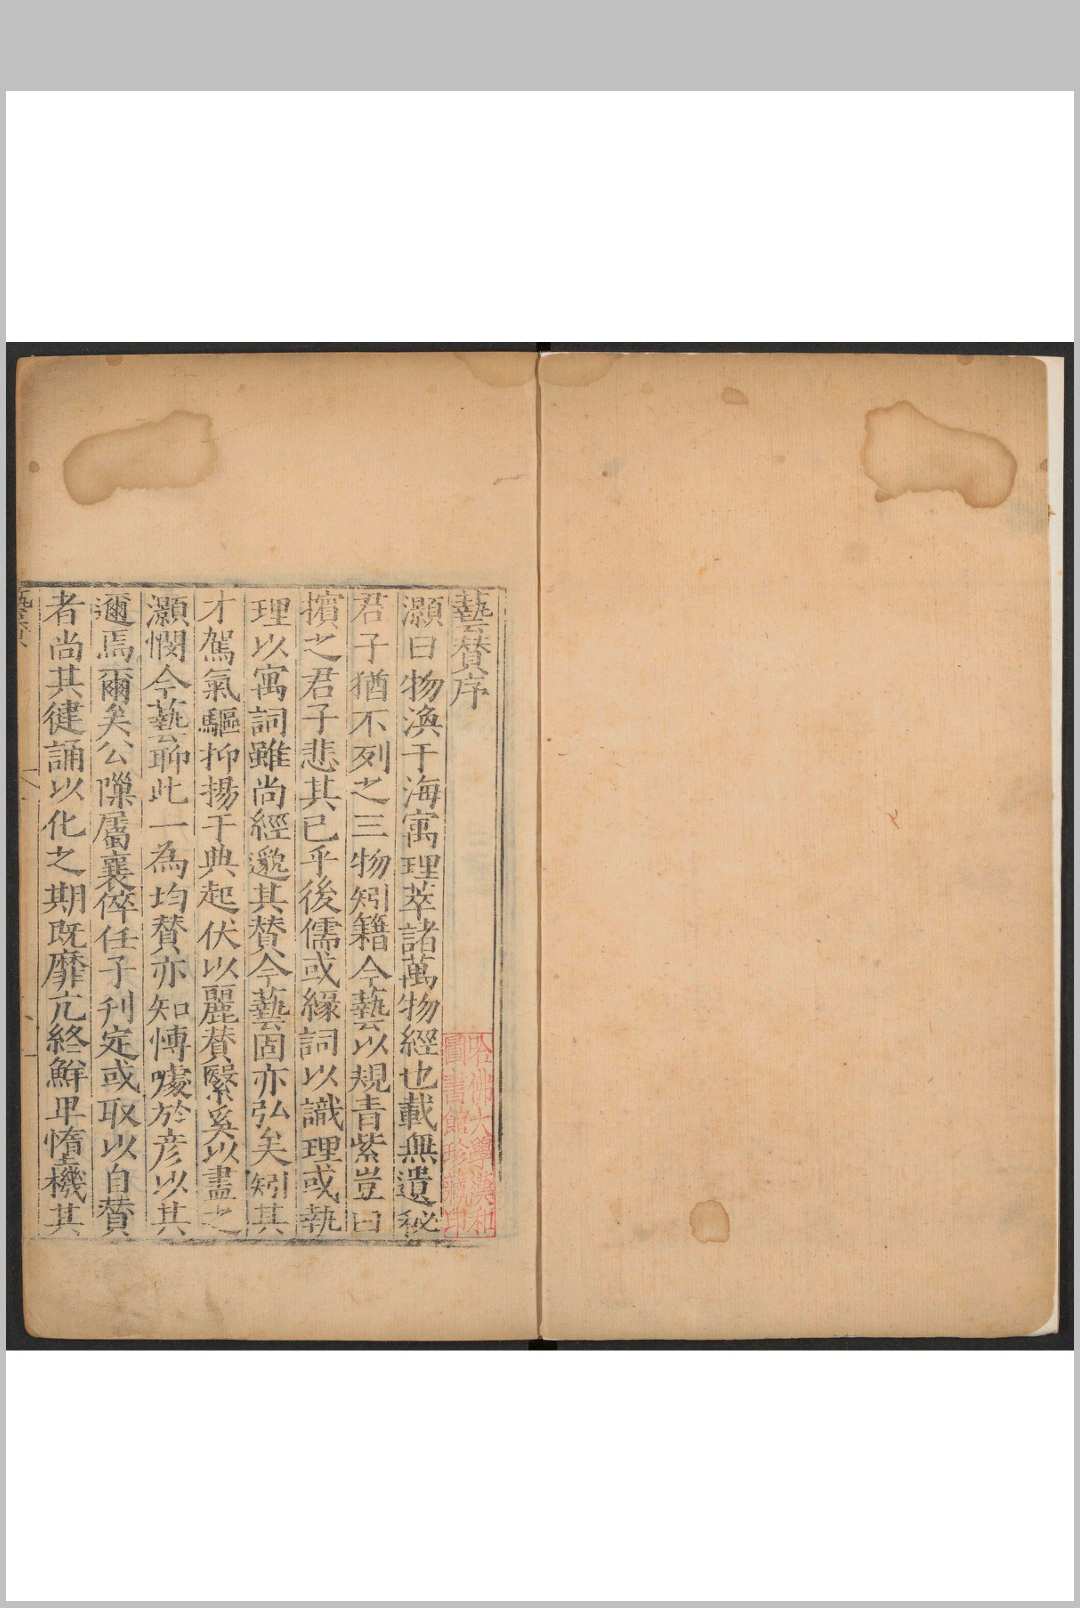 藝贊序
灝曰物渙于海寓理萃諸萬物經也載無遺秘
君子猶不列之三物矧籍今藝以規青紫豈曰
擯之君子悲其已乎後儒或緣詞以識理或執
理以寓詞雖尚經邈其贊今藝固亦弘矣矧其
才駕氣驅抑揚于典起伏以麗贊繄奚以盡之
灝憫今藝聊此一為均贊亦知愽噱於彦以其
邇焉爾矣公隟屬襄倅任子刋定或取以自贊
者尚其徤誦以化之期既靡亢終鮮卑惰機其
哈佛大學漢和
圖書館珍藏印
藝贊